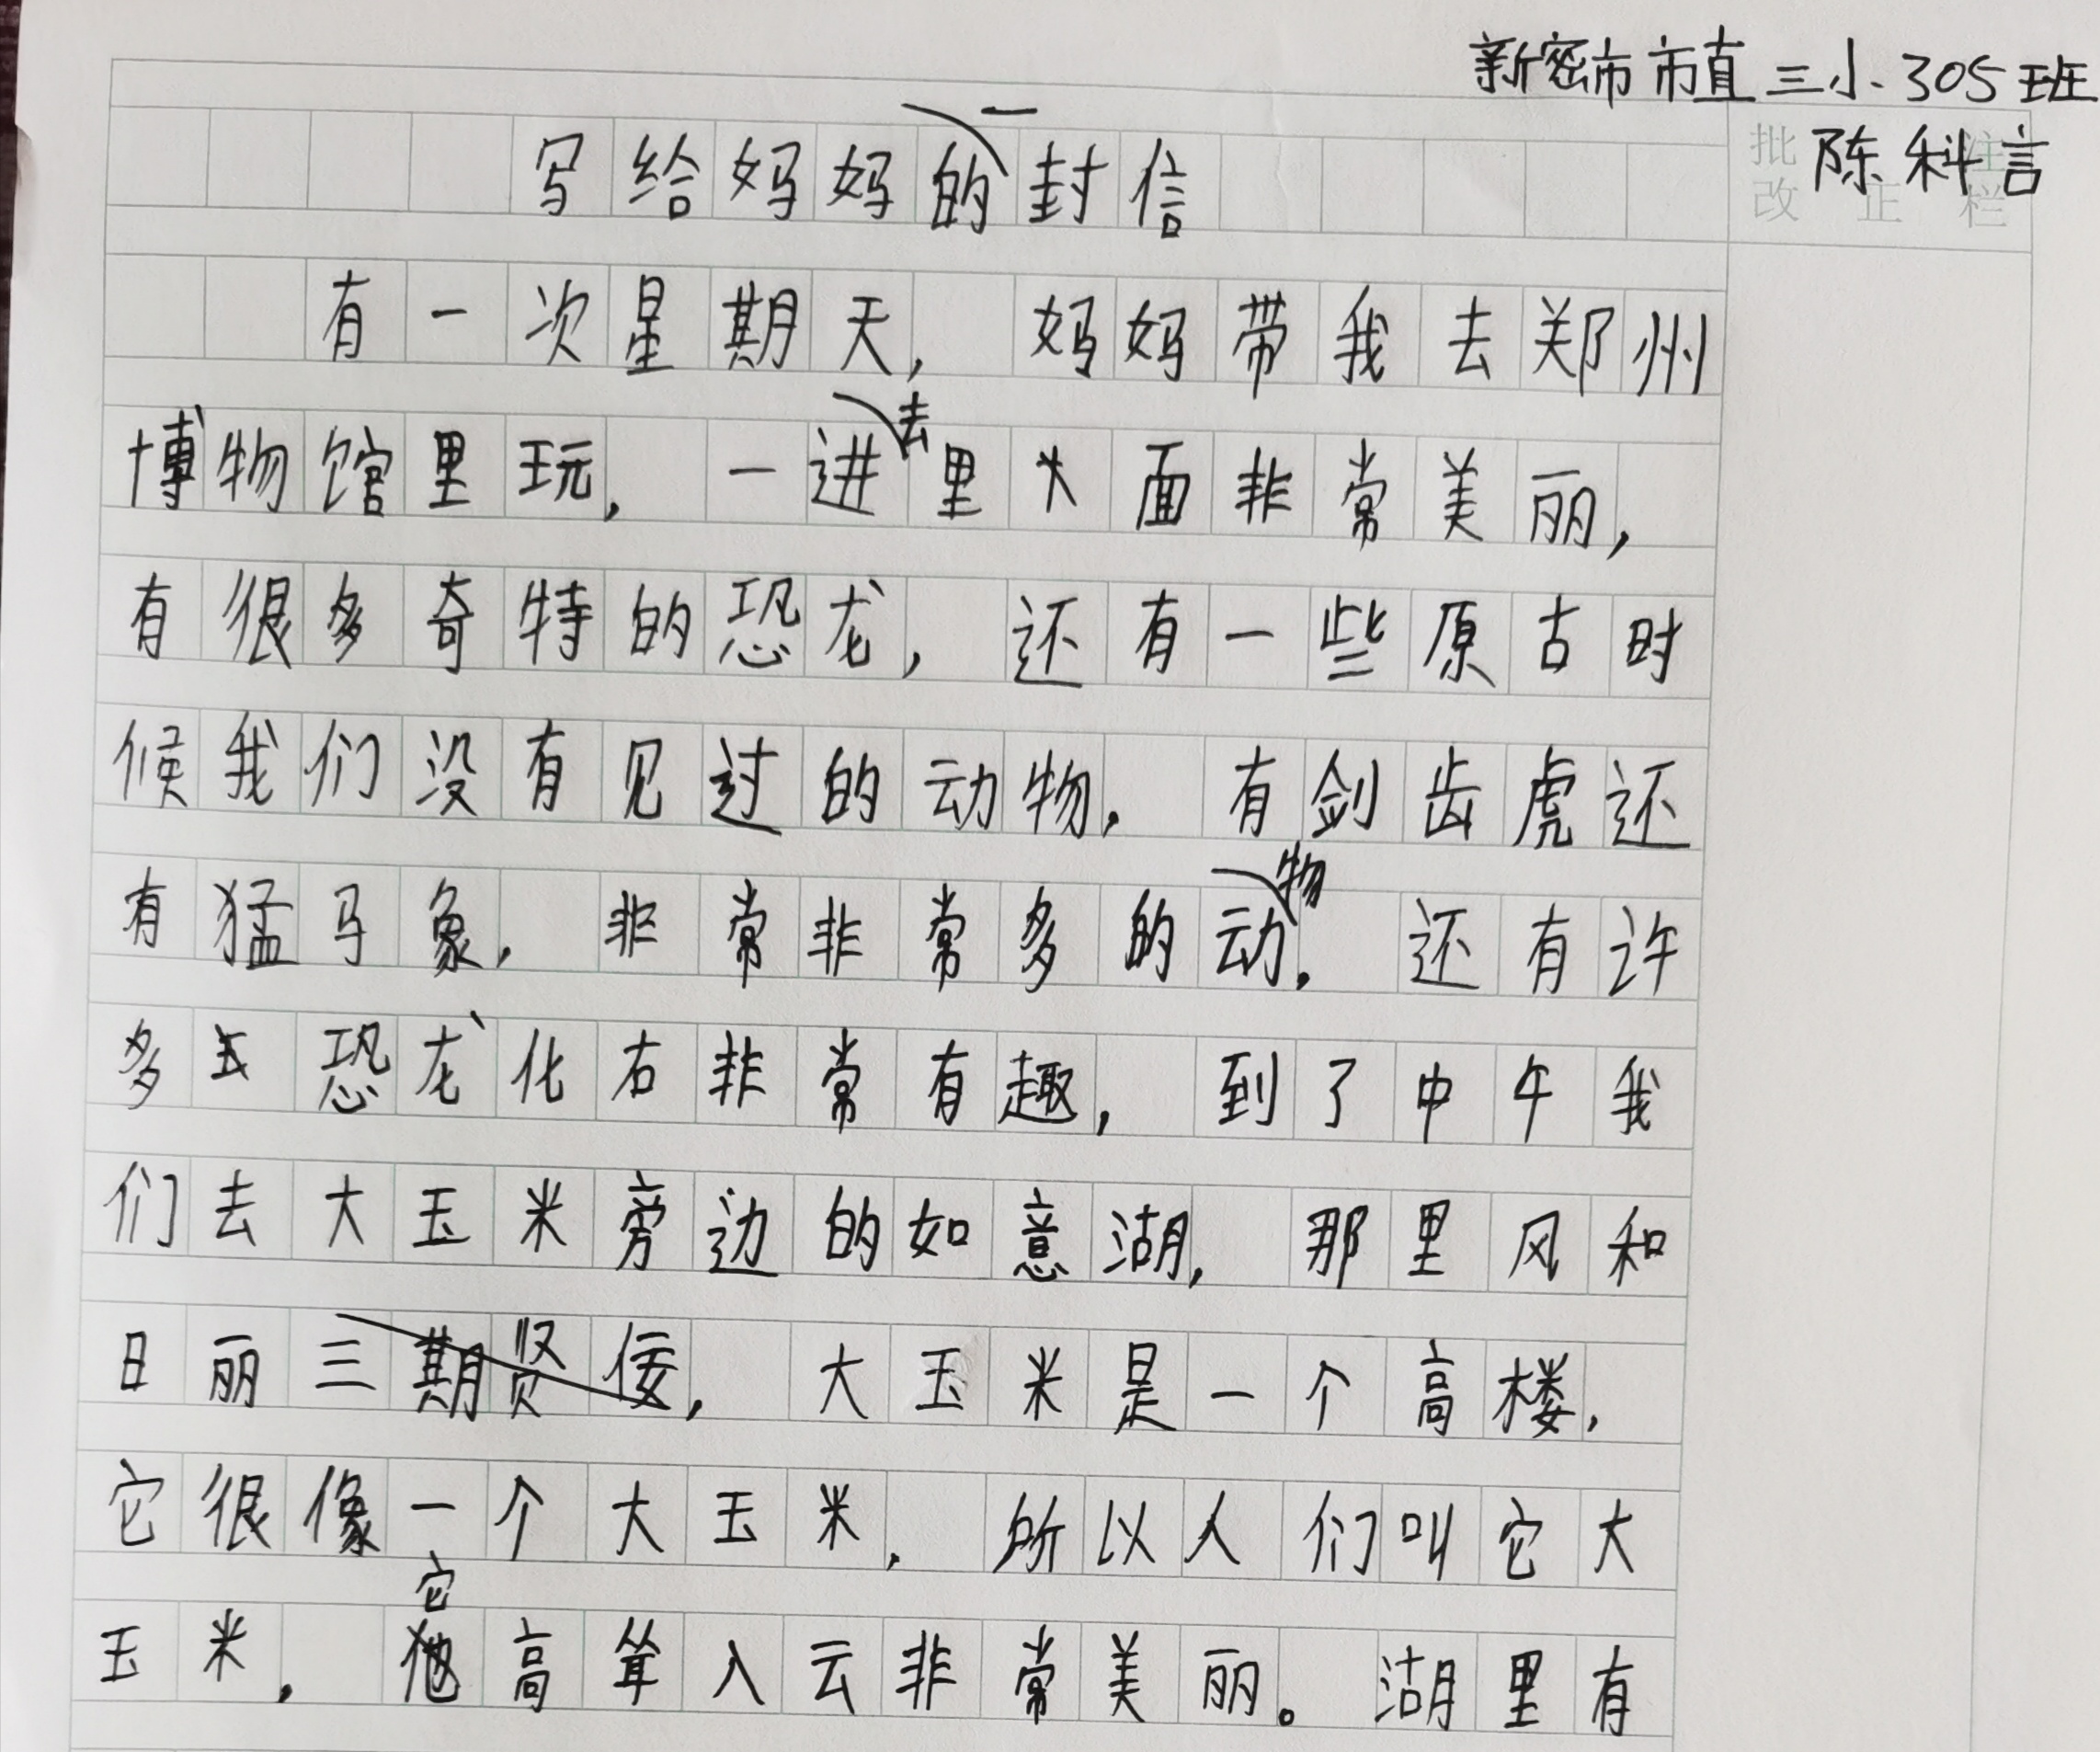 新密市市直三小.305班
陈科言
批注
改正栏
写给妈妈的一封信
有一次星期天，妈妈带我去郑州
博物馆里玩，一进去里大面非常美丽，
有很多奇特的恐龙，还有一些原古时
候我们没有见过的动物，有剑齿虎还
有猛马象，非常非常多的动物，还有许
多恐龙化右非常有趣，到了中午我
们去大玉米旁边的如意湖，那里风和
日丽三期贤佞，大玉米是一个高楼，
它很像一个大玉米，所以人们叫它大
玉米，它高耸入云非常美丽。湖里有